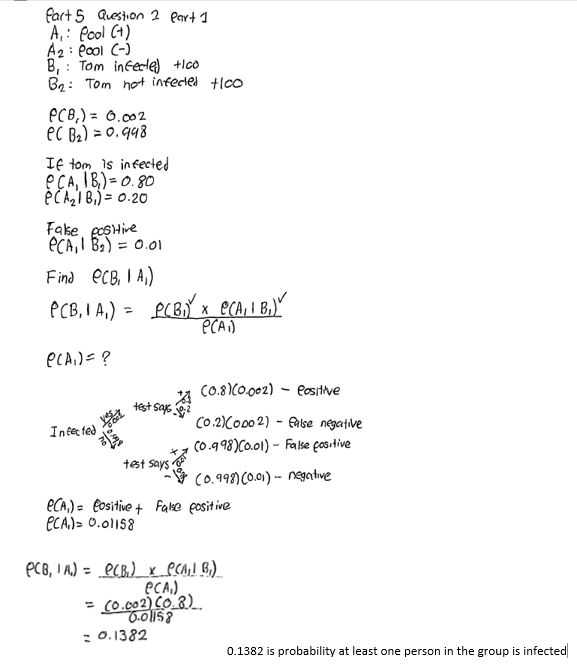 Part 5 Question 2 Part 1
A₁: Pool (+)
A₂: Pool (-)
B₁: Tom infected +100
B₂: Tom not infected +100
P(B₁) = 0.002
P(B₂) = 0.998
If tom is infected
P(A₁|B₁) = 0.80
P(A₂|B₁) = 0.20
False positive
P(A₁|B₂) = 0.01
Find P(B₁|A₁)
P(B₁|A₁) = P(B₁)✓ x P(A₁|B₁)✓
P(A₁)
P(A₁) = ?
(0.8)(0.002) - Positive
test says + 0.8 - 0.2
yes 0.002
(0.2)(0.002) - false negative
Infected
no 0.998
(0.998)(0.01) - False positive
test says + 0.01 -
(0.998)(0.01) - negative
P(A₁) = Positive + False positive
P(A₁) = 0.01158
P(B₁|A₁) = P(B₁) x P(A₁|B₁)
P(A₁)
= (0.002)(0.8)
0.01158
= 0.1382
0.1382 is probability at least one person in the group is infected